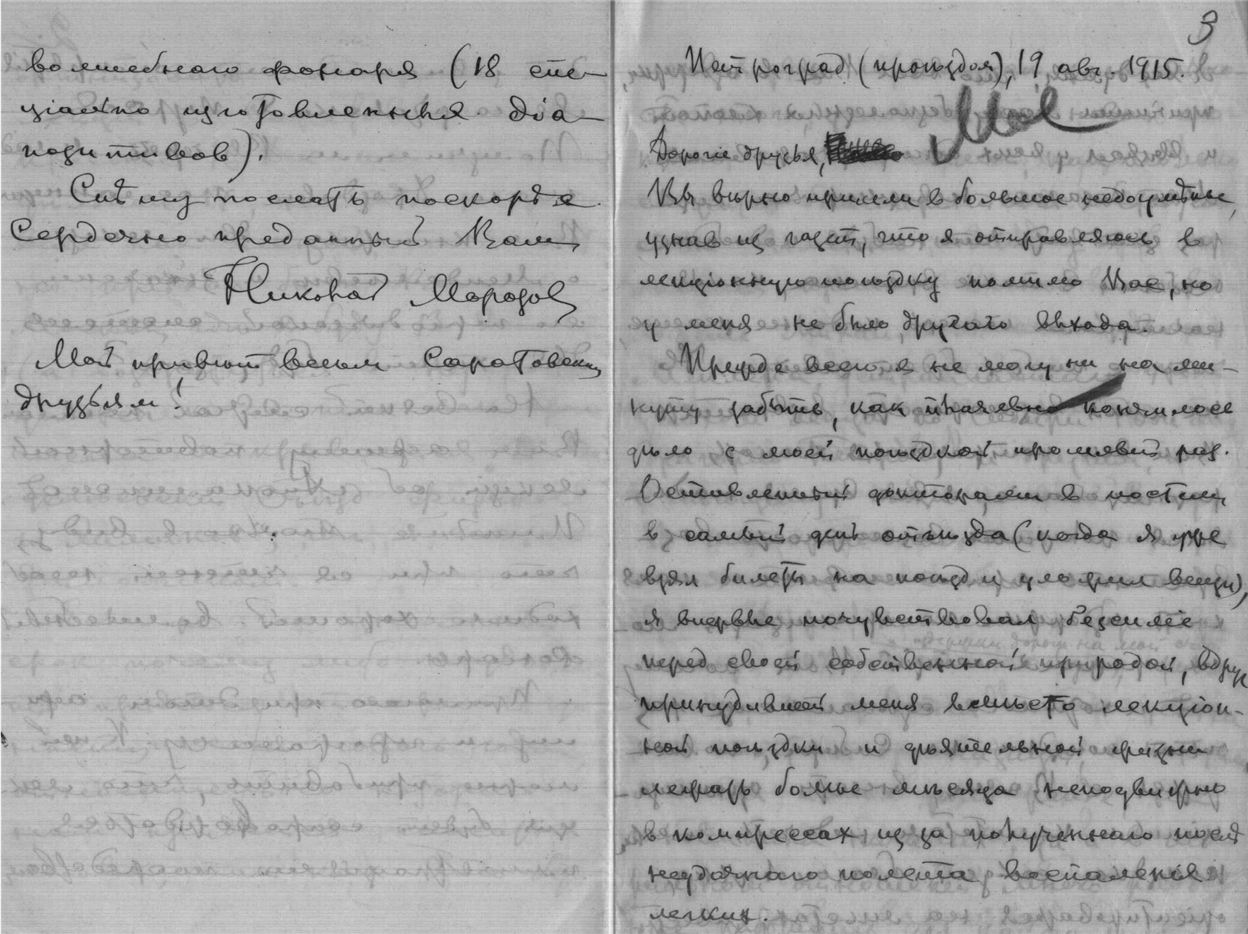 волшебнаго фонаря (18 спе-
цiально изготовленныя дiа-
позитивов).
Спѣшу послать поскорѣе.
Сердечно преданный Вам
Николай Морозов
Мой привѣт всем Саратовским
друзьям!
3
Петроград (проѣздом), 19 авг. 1915.
Дорогiе друзья,
Вы вѣрно пришли в большое недоумѣнiе,
узнав из газет, что я отправляюсь в
лекцiонную поѣздку помимо Вас, но
у меня не было другого выхода.
Прежде всего я не могу ни на ми-
нуту забыть, как плачевно кончилось
дѣло с моей поѣздкой прошлый раз.
Оставленный докторами в постели
в самый день отъѣзда (когда я уже
взял билеты на поѣзд и уложил вещи),
я впервые почувствовал безсилiе
перед своей собственной природой, вдруг
принудившей меня вмѣсто лекцiон-
ной поѣздки и дѣятельной жизни
лежать болѣе мѣсяца неподвижно
в компрессах из за полученнаго послѣ
неудачнаго полета воспаленiя
легких.